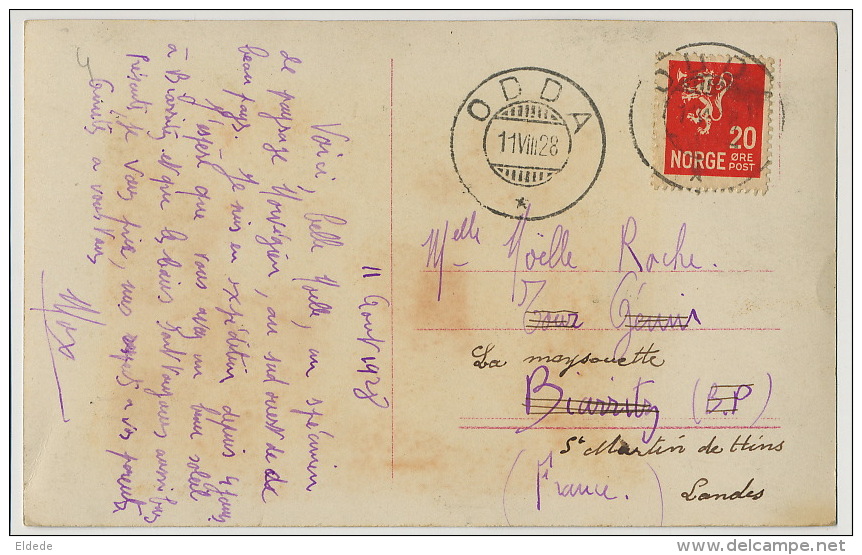 11 Août 1928
Voici, belle Noëlle, un spécimen
de paysage Norvégien, au sud ouest de ce
beau pays. Je suis en expédition depuis 4 jours
J'espère que vous avez un bon soleil
à Biarritz et que les bains sont toujours
Présentez je vous prie, mes respects à vos parents
Amitiés à vous tous
ODDA
11 VIII 28
20
NORGE ØRE
POST
Melle Noëlle Roche.
La maysouette
Biarritz (B.P)
St Martin de Hins
(France.)
Landes
Eldede
delcampe.net